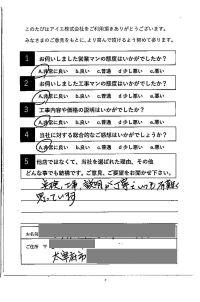 このたびはアイエ株式会社をご利用頂きありがとうございます。
みなさまのご意見をもとに、より良んで頂けるよう努めて参ります。
1 お伺いしました営業マンの態度はいかがでしたか？
A.非常に良い B.良い C.普通 d.少悪い e.悪い
2 お伺いしました工事マンの態度はいかがでしたか？
A.非常に良い B.良い C.普通 d.少悪い e.悪い
3 工事内容や価格の説明はいかがでしたか？
A.非常に良い B.良い C.普通 d.少悪い e.悪い
4 当社に対する総合的なご感想はいかがでしょうか？
A.非常に良い B.良い C.普通 d.少悪い e.悪い
5 他店ではなくて、当社を選ばれた理由、その他
どんな事でも結構です。ご意見、ご要望をお聞かせ下さい。
工事、説明が丁寧
思っています
お名前
ご住所 〒
大東市